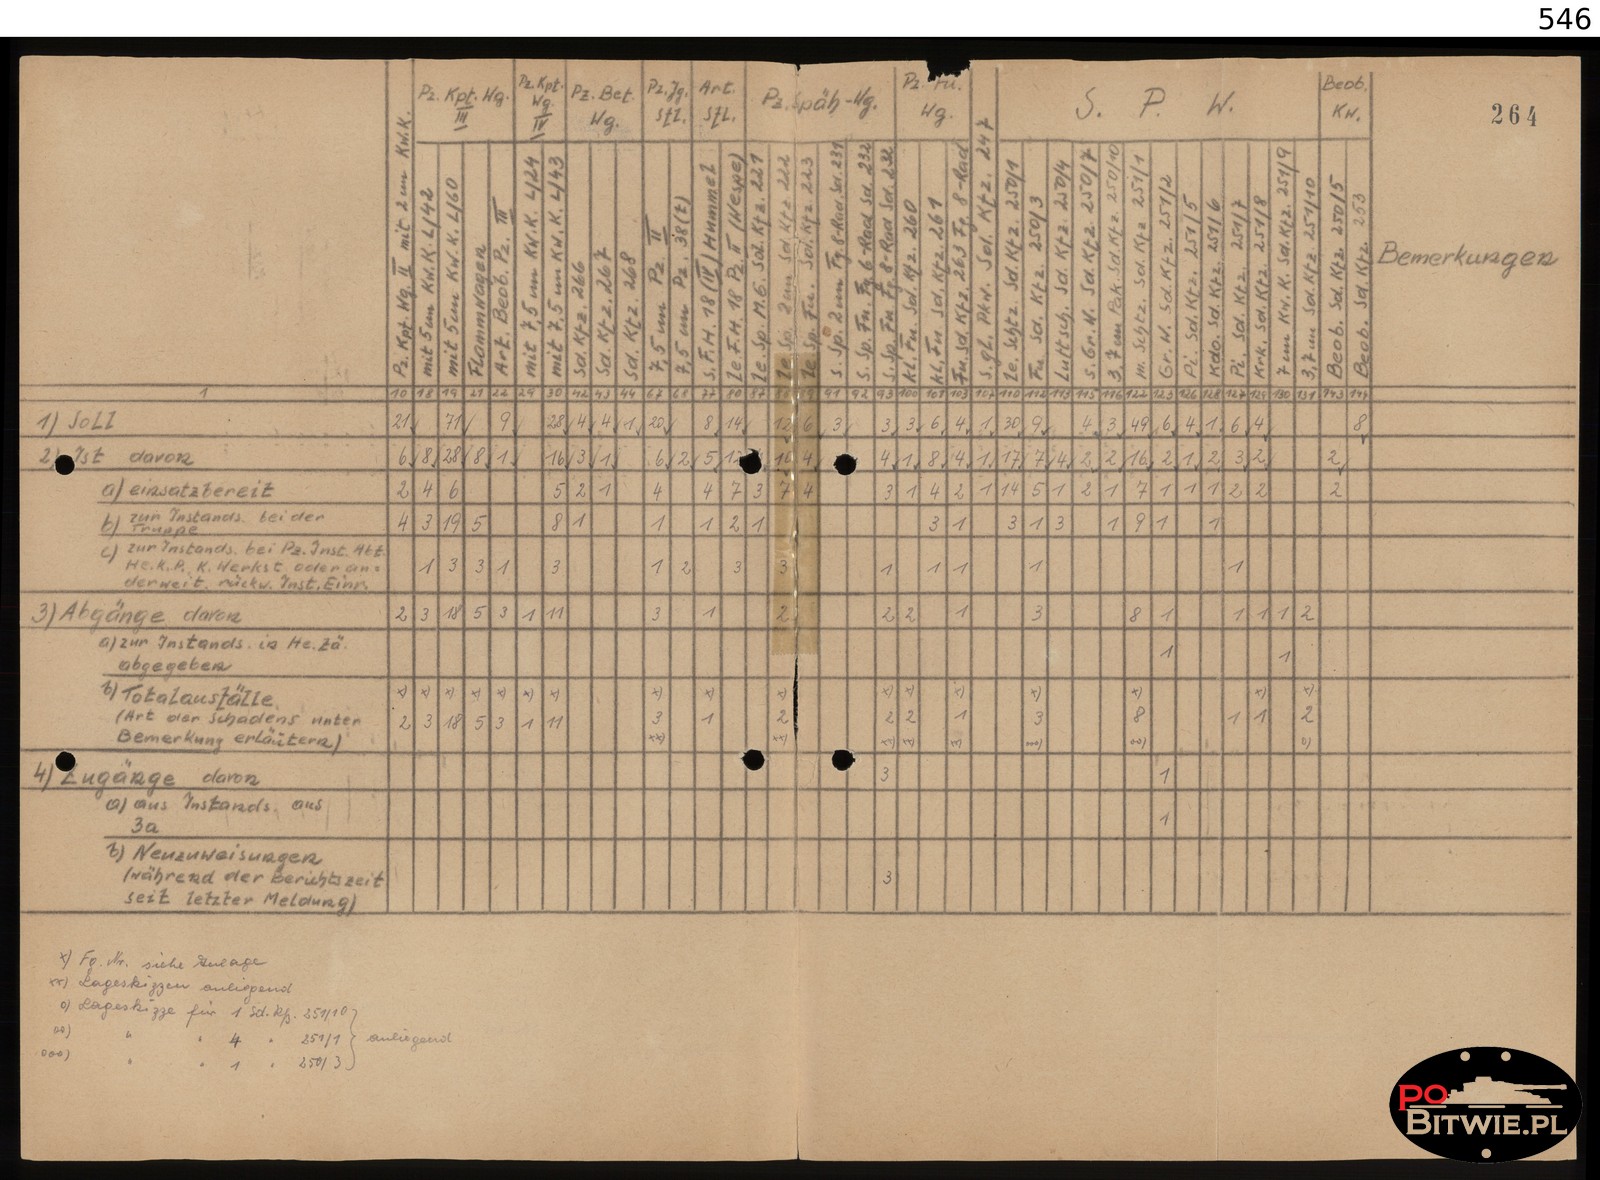 546
264
Pz. Kpt. Wg. III
Pz. Kpt. Wg. IV
Pz. Bef. Wg.
Pz. Jg. Sfl.
Art. Sfl.
Pz. Späh-Wg.
Pz. Fu. Wg.
S. P. W.
Beob. Kw.
Pz. Kpt. Wg. II mit 2 cm Kw.K.
mit 5 cm Kw.K. L/42
mit 5 cm Kw.K. L/60
Flammwagen
Art. Beob. Pz. III
mit 7,5 cm Kw.K. L/24
mit 7,5 cm Kw.K. L/43
Sd. Kfz. 266
Sd. Kfz. 267
Sd. Kfz. 268
7,5 cm Pz. II
7,5 cm Pz. 38(t)
s. F.H. 18 (IV) Hummel
le. F.H. 18 Pz. II (Wespe)
le. Sp. M.G. Sd. Kfz. 221
le. Sp. 2 cm Sd. Kfz. 222
le. Sp. Fu. Sd. Kfz. 223
s. Sp. 2 cm Fg. 8-Rad. Sd. 231
s. Sp. Fu. Fg. 6-Rad Sd. 232
s. Sp. Fu. Fg. 8-Rad Sd. 232
kl. Fu. Sd. Kfz. 260
kl. Fu. Sd. Kfz. 261
Fu. Sd. Kfz. 263 Fg. 8-Rad
s. gl. Pkw. Sd. Kfz. 247
le. Schtz. Sd. Kfz. 250/1
Fu Sd. Kfz. 250/3
Luftsch. Sd. Kfz. 250/4
s. Gr.W. Sd. Kfz. 250/7
3,7 cm Pak. Sd. Kfz. 250/10
m. Schtz. Sd. Kfz. 251/1
Gr. W. Sd. Kfz. 251/2
Pi. Sd. Kfz. 251/5
Kdo. Sd. Kfz. 251/6
Pi. Sd. Kfz. 251/7
Krk. Sd. Kfz. 251/8
7 cm Kw. K. Sd. Kfz. 251/9
3,7 cm Sd. Kfz. 251/10
Beob. Sd. Kfz. 250/5
Beob. Sd. Kfz. 253
Bemerkungen
1 10 18 19 21 22 29 30 42 43 44 67 68 77 80 87 88 89 91 92 93 100 101 103 107 110 112 113 115 116 122 123 126 128 127 129 130 131 143 144
1) Soll 21 71 9 28 4 4 1 20 8 14 12 6 3 3 3 6 4 1 30 9 4 3 49 6 4 1 6 4 8
2) Ist davon 6 8 28 8 1 16 3 1 6 2 5 12 4 4 1 8 4 1 17 7 4 2 2 16 2 1 2 3 2 2
a) einsatzbereit 2 4 6 5 2 1 4 4 7 3 7 4 3 1 4 2 1 14 5 1 2 1 7 1 1 1 2 2 2
b) zur Instands. bei der Truppe 4 3 19 5 8 1 1 1 2 1 3 1 3 1 3 1 9 1 1
c) zur Instands. bei Pz. Inst. Abt.
He.K.P. K. Werkst. oder an-
derweit. rückw. Inst. Einr. 1 3 3 1 3 1 2 3 3 1 1 1 1 1
3) Abgänge davon 2 3 18 5 3 1 11 3 1 2 2 2 1 3 8 1 1 1 1 2
a) zur Instands. in He. Zä.
abgegeben 1 1
b) Totalausfälle x) x) x) x) x) x) x) x) x) x) x) x) x) x) x) x) x)
(Art der Schadens unter 2 3 18 5 3 1 11 3 1 2 2 2 1 3 8 1 1 2
Bemerkung erläutern) xx) xx) xx) xx) xx) ooo) oo) o)
4) Zugänge davon 3 1
a) aus Instands. aus
3a 1
b) Neuzuweisungen
(während der Berichtszeit 3
seit letzter Meldung)
x) Fg. Nr. siehe Anlage
xx) Lageskizzen anliegend
o) Lageskizze für 1 Sd. Kfz. 251/10
oo) " " 4 " 251/1 anliegend
ooo) " " 1 " 250/3
PO
BITWIE.PL